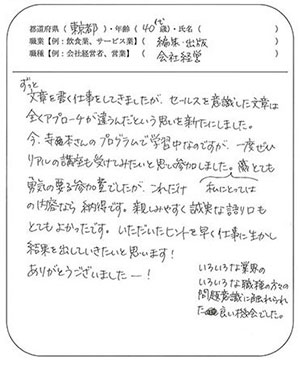 都道府県（ 東京都 ）・年齢（ 40代 歳）・氏名（ ）
職業【例：飲食業、サービス業】（ 編集・出版 ）
職種【例：会社経営者、営業】（ 会社経営 ）
ずっと
文章を書く仕事をしてきましたが、セールスを意識した文章は
全くアプローチが違うんだという思いを新たにしました。
今、寺本さんのプログラムで学習中なのですが、一度ぜひ
リアルの講座も受けてみたいと思い参加しました。とても
勇気の要る参加費でしたが、これだけ 私にとっては
の内容なら納得です。親しみやすく誠実な語り口も
とてもよかったです。いただいたヒントを早く仕事に生かし
結果を出していきたいと思います！
ありがとうございましたー！
いろいろな業界の
いろいろな職種の方々の
問題意識に触れられ
た良い機会でした。